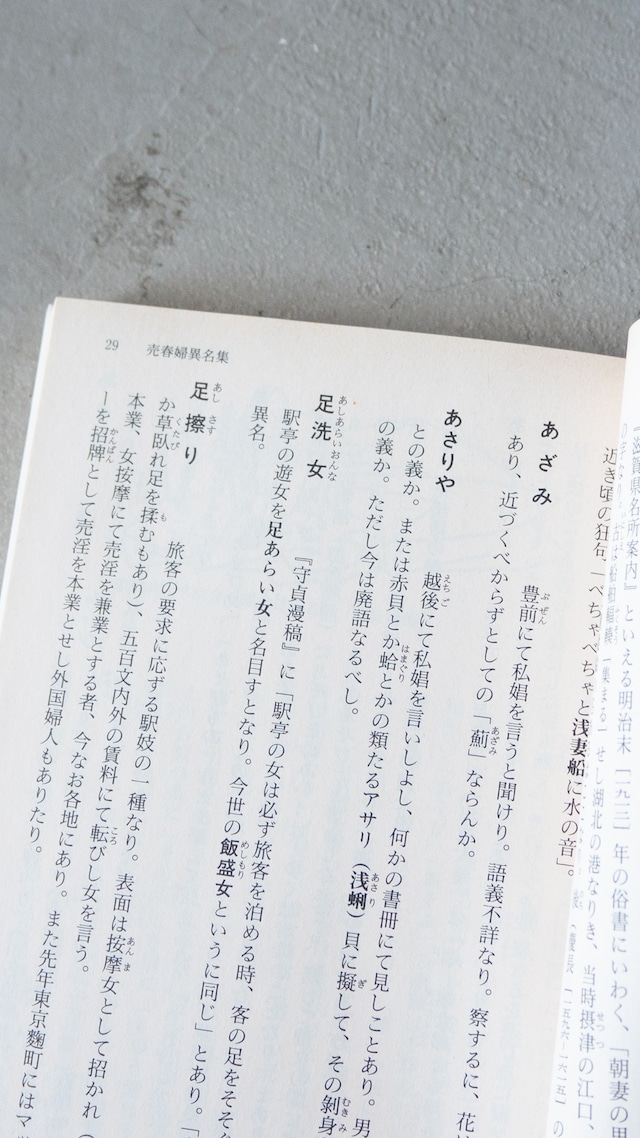 29 売春婦異名集
『滋賀県名所案内』といえる明治末［一九一三］年の俗書にいわく、「朝妻の里
集まる」せし湖北の港なりき、当時摂津の江口、
近き頃の狂句、「べちゃべちゃと浅妻船に水の音」。
あざみ 豊前にて私娼を言うと聞けり。語義不詳なり。察するに、花
あり、近づくべからずとしての「薊」ならんか。
あさりや 越後にて私娼を言いしよし、何かの書冊にて見しことあり。男
との義か。または赤貝とか蛤とかの類たるアサリ（浅蜊）貝に擬して、その剥身
の義か。ただし今は廃語なるべし。
足洗女 『守貞漫稿』に「駅亭の女は必ず旅客を泊める時、客の足をそそ
駅亭の遊女を足あらい女と名目すとなり。今世の飯盛女というに同じ」とあり。
異名。
足擦り 旅客の要求に応ずる駅妓の一種なり。表面は按摩女として招かれ（
か草臥れ足を揉むもあり）、五百文内外の賃料にて転びし女を言う。
本業、女按摩にて売淫を兼業とする者、今なお各地にあり。また先年東京麴町にはマ
ーを招牌として売淫を本業とせし外国婦人もありたり。